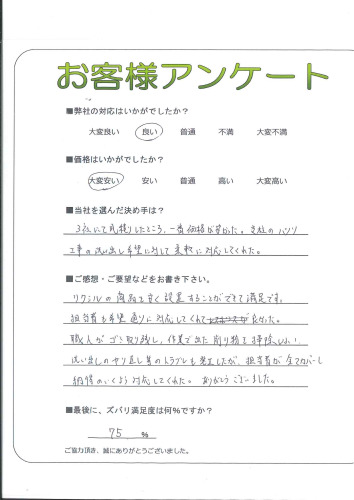 お客様アンケート
■弊社の対応はいかがでしたか？
大変良い　良い　普通　不満　大変不満
■価格はいかがでしたか？
大変安い　安い　普通　高い　大変高い
■当社を選んだ決め手は？
3社にて見積りしたところ、一番価格が安かった。
工事の洗い出し希望に対して柔軟に対応してくれた。
■ご感想・ご要望などをお書き下さい。
リクシルの商品を安く設置することができて満足です。
担当者も希望通りに対応してくれて良かった。
職人がゴミ取り残し、作業で出た削り物を掃除しない、
洗い出しのやり直し等のトラブルも発生したが、担当者が全てカバーし
納得のいくよう対応してくれた。ありがとうございました。
■最後に、ズバリ満足度は何%ですか？
75 %
ご協力頂き、誠にありがとうございました。